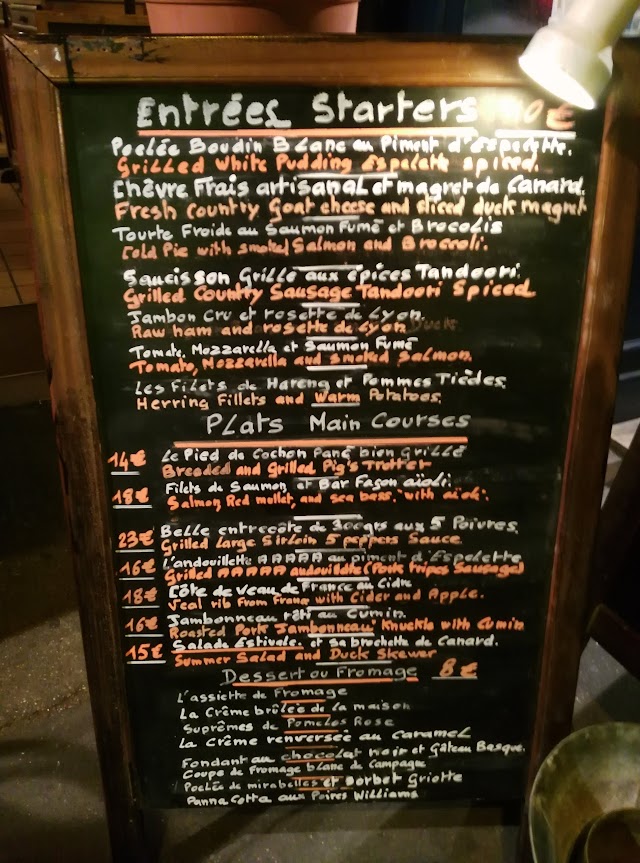 Entrées Starters 10€
Poelée Boudin Blanc au Piment d'Espelette.
Grilled White Pudding Espelette spiced.
Chèvre Frais artisanal et magret de Canard.
Fresh Country Goat cheese and sliced duck magret
Tourte Froide au Saumon Fumé et Brocolis
Cold Pie with smoked Salmon and Broccoli.
Saucisson Grillé aux épices Tandoori.
Grilled Country Sausage Tandoori Spiced
Jambon Cru et rosette de Lyon.
Raw ham and rosette de Lyon
Tomate, Mozzarella et Saumon Fumé
Tomato, Mozzarella and smoked Salmon.
Les Filets de Hareng et Pommes Tièdes.
Herring Fillets and Warm Potatoes.
Plats Main Courses
14€ Le Pied de Cochon Pané bien Grillé
Breaded and Grilled Pig's Trotter
18€ Filets de Saumon et Bar Façon aïoli.
Salmon, Red mullet, and sea bass, "with aïoli".
23€ Belle entrecôte de 300grs aux 5 Poivres.
Grilled large Sirloin 5 peppers Sauce
16€ L'andouillette AAAAA au piment d'Espelette
Grilled AAAAA andouillette (Pork tripes Sausage)
18€ Côte de Veau de France au Cidre
Veal rib From France with Cider and Apple.
16€ Jambonneau rôti au Cumin.
Roasted Pork "Jambonneau" Knuckle with Cumin
15€ Salade Estivale. et sa brochette de Canard.
Summer Salad and Duck Skewer
Dessert ou Fromage 8€
L'assiette de Fromage
La Crème brûlée de la maison
Suprêmes de Pomelos Rose
La Crème renversée au caramel
Fondant au chocolat noir et Gâteau Basque.
Coupe de Fromage blanc de Campagne
Poelée de mirabelles et sorbet Griotte
Panna Cotta aux Poires Williams